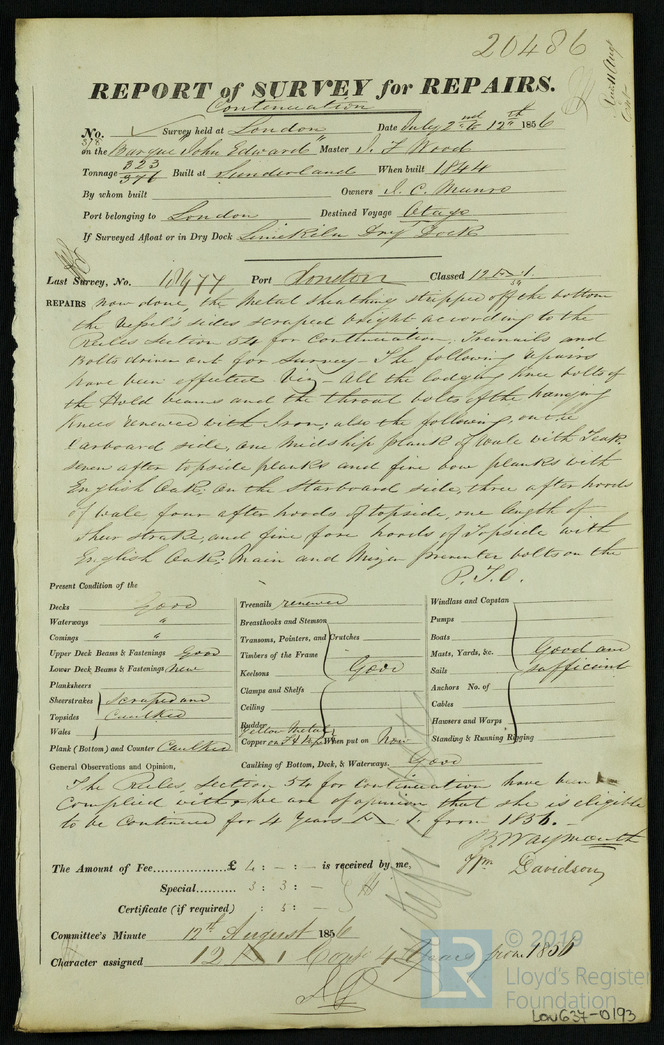 20486
REPORT of SURVEY for REPAIRS.
Continuation
No. 378 Survey held at London Date July 2nd to 12th 1856
on the Barque "John Edward" Master J. F. Wood
Tonnage 323 371 Built at Sunderland When built 1844
By whom built Owners J. C. Munro
Port belonging to London Destined Voyage Otago
If Surveyed Afloat or in Dry Dock Limekiln Dry Dock
Last Survey, No. Port London Classed 12 A. 1.
REPAIRS now done, the Metal Sheathing stripped off the bottom
the Vessel's sides scraped bright according to the
Rules Section 54 for Continuation, Treenails and
Bolts driven out for Survey - The following repairs
have been effected Viz - All the lodging knee bolts of
the Hold beams and the throat bolts of the hanging
Knees renewed with Iron; also the following, on the
Larboard side, one Midship plank of wale with Teak
seven after topside planks and five bow planks with
English Oak; on the Starboard side, three after hoods
of wale, four after hoods of topside, one length of
Sheer strake, and five fore hoods of Topside with
English Oak; Main and Mizen preventer bolts on the
P.T.O.
Present Condition of the
Decks Good
Waterways "
Comings "
Upper Deck Beams & Fastenings Good
Lower Deck Beams & Fastenings New
Planksheers
Sheerstrakes
Topsides
Wales
Scraped and
Caulked
Plank (Bottom) and Counter Caulked
Treenails renewed
Breasthooks and Stemson
Transoms, Pointers, and Crutches
Timbers of the Frame
Keelsons
Clamps and Shelfs
Ceiling
Rudder
Good
Yellow Metal
Copper on Felt When put on Now
Windlass and Capstan
Pumps
Boats
Masts, Yards, &c.
Sails
Anchors No. of
Cables
Hawsers and Warps
Standing & Running Rigging
Good and
sufficient
General Observations and Opinion, Caulking of Bottom, Deck, & Waterways. Good
The Rules, section 54 for Continuation have been
Complied with & we are of opinion that she is eligible
to be Continued for 4 Years A. 1. from 1856.
B Waymouth
Wm Davidson
The Amount of Fee £ 4 : - : - is received by me,
Special 3 : 3 : -
Certificate (if required) : 5 : -
Committee's Minute 12th August 1856
Character assigned 12 A 1 Cont 4 Years from 1856
© 2019
LR
Lloyd's Register
Foundation
LON637-0193